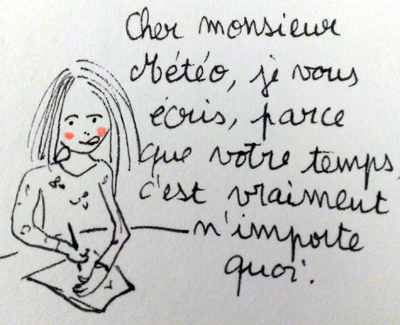 Cher monsieur
Météo, je vous
écris, parce
que votre temps,
c'est vraiment
n'importe
quoi.